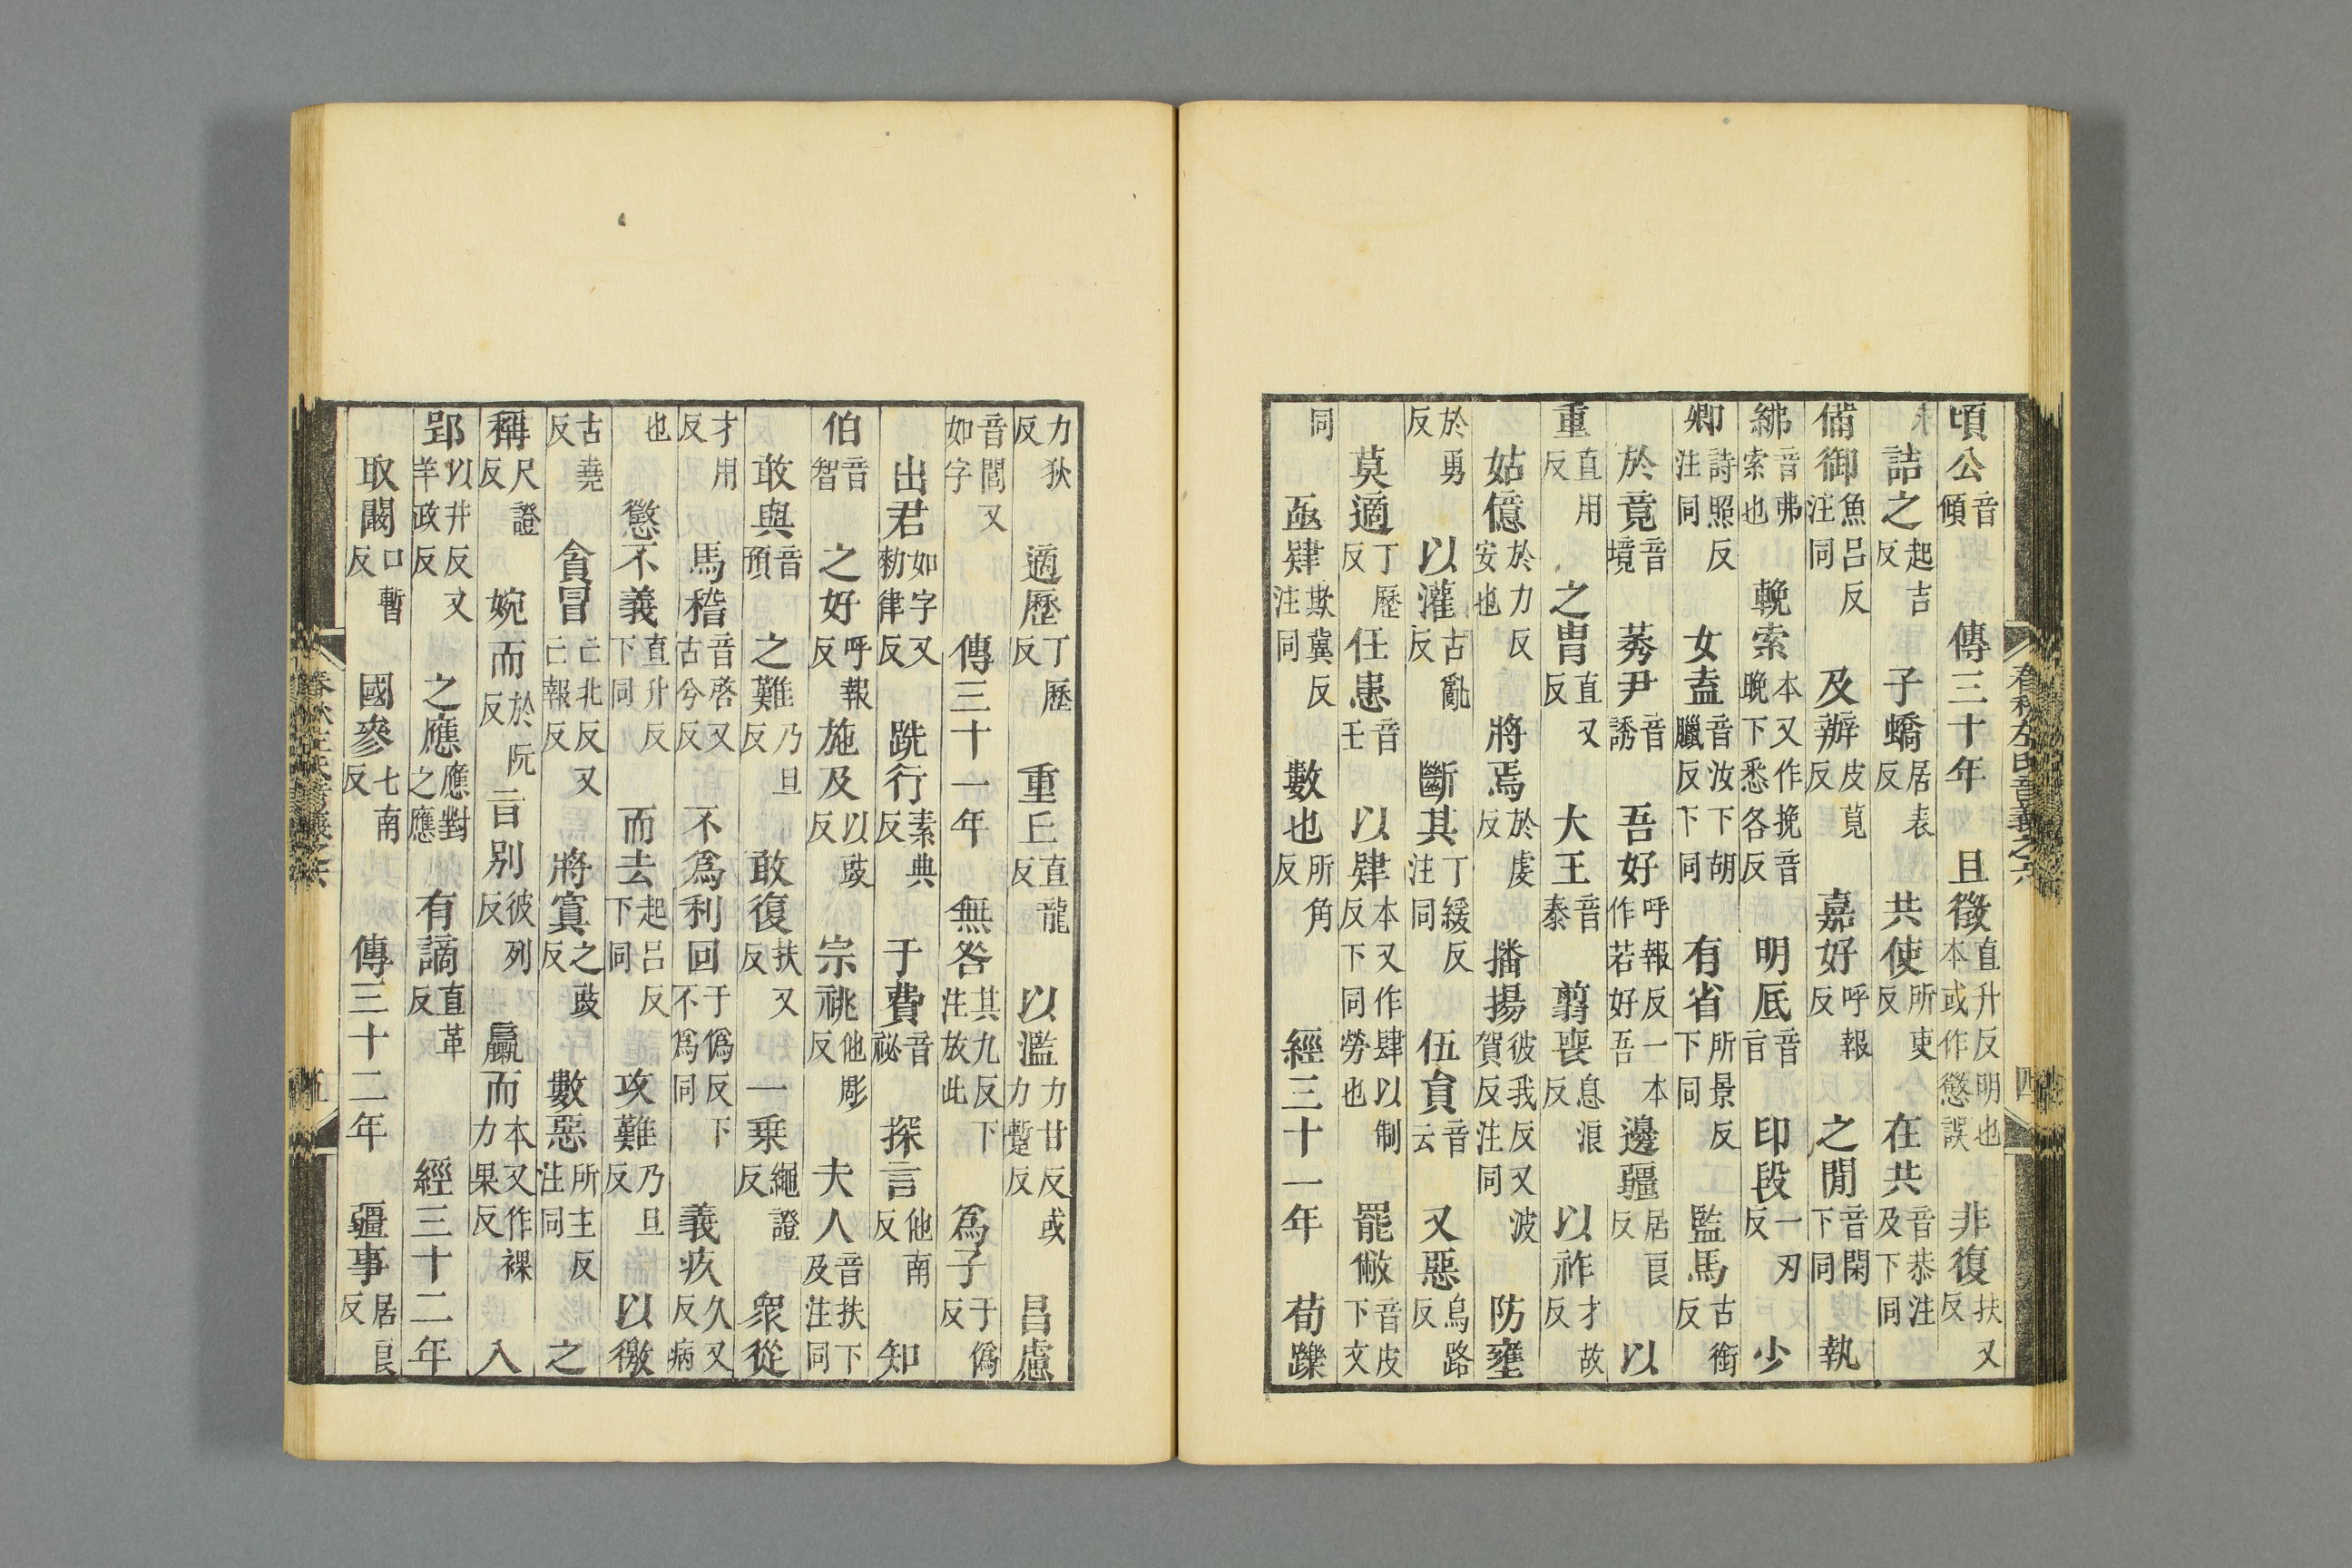 春秋左氏音義之六 四
頃公音傾 傳三十年 且徵直升反明也本或作懲誤 非復扶又反
詰之起吉反 子蟜居表反 共使所吏反 在共音恭注及下同
備御魚呂反注同 及辦皮莧反 嘉好呼報反 之閒音閑下同 執
紼音弗索也 輓索本又作挽音晚下悉各反 明厎音言 印段一刃反 少
卿詩照反注同 女盍音汝下胡臘反下同 有省所景反下同 監馬古銜反
於竟音境 莠尹音誘 吾好呼報反一本作若好吾 邊疆居良反 以
重直用反 之冑直又反 大王音泰 翦喪息浪反 以祚才故反
姑億於力反安也 將焉於虔反 播揚彼我反又波賀反注同 防壅
於勇反 以灌古亂反 斷其丁緩反注同 伍員音云 又惡烏路反
莫適丁歷反 任患音壬 以肄本又作肆以制反下同勞也 罷敝音皮下文
同 亟肄欺冀反注同 數也所角反 經三十一年 荀躒
力狄反 適歷丁歷反 重丘直龍反 以濫力甘反或力蹔反 昌慮
音閭又如字 傳三十一年 無咎其九反下注放此 爲子于僞反
出君如字又勑律反 跣行素典反 于費音祕 探言他南反 知
伯音智 之好呼報反 施及以豉反 宗祧他彫反 夫人音扶下及注同
敢與音預 之難乃旦反 敢復扶又反 一乘繩證反 衆從
才用反 馬稽音啓又古兮反 不爲利回于僞反下不爲同 義疚久又反病
也 懲不義直升反下同 而去起呂反下同 攻難乃旦反 以徼
古堯反 貪冒亡北反又亡報反 將寘之豉反 數惡所主反注同 之
稱尺證反 婉而於阮反 言別彼列反 臝而本又作裸力果反 入
郢以井反又羊政反 之應應對之應 有謫直革反 經三十二年
取闞口暫反 國參七南反 傳三十二年 疆事居良反
春秋左氏音義之六 五